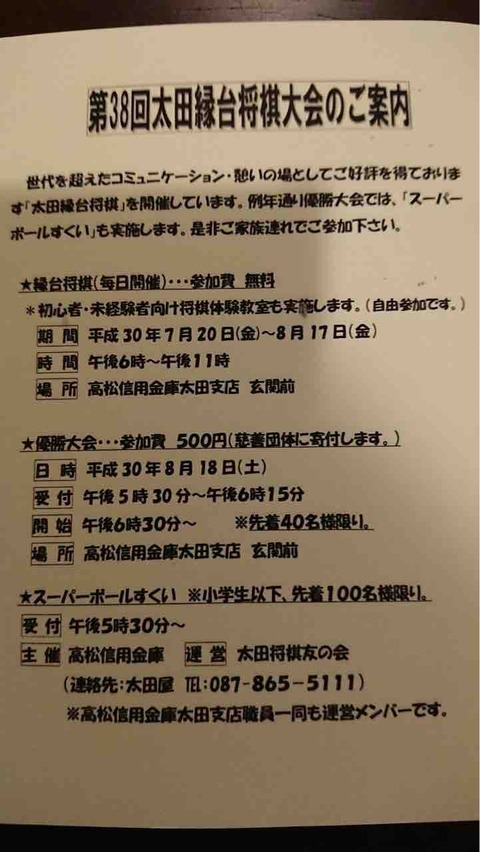 第38回太田縁台将棋大会のご案内
世代を超えたコミュニケーション・憩いの場としてご好評を得ておりま
す「太田縁台将棋」を開催しています。例年通り優勝大会では、「スーパー
ボールすくい」も実施します。是非ご家族連れでご参加下さい。
★縁台将棋(毎日開催)・・・参加費 無料
＊初心者・未経験者向け将棋体験教室も実施します。(自由参加です。)
期間 平成30年7月20日(金)～8月17日(金)
時間 午後6時～午後11時
場所 高松信用金庫太田支店 玄関前
★優勝大会・・・参加費 500円(慈善団体に寄付します。)
日時 平成30年8月18日(土)
受付 午後5時30分～午後6時15分
開始 午後6時30分～ ※先着40名様限り。
場所 高松信用金庫太田支店 玄関前
★スーパーボールすくい ※小学生以下、先着100名様限り。
受付 午後5時30分～
主催 高松信用金庫 運営 太田将棋友の会
(連絡先:太田屋 TEL:087-865-5111)
※高松信用金庫太田支店職員一同も運営メンバーです。